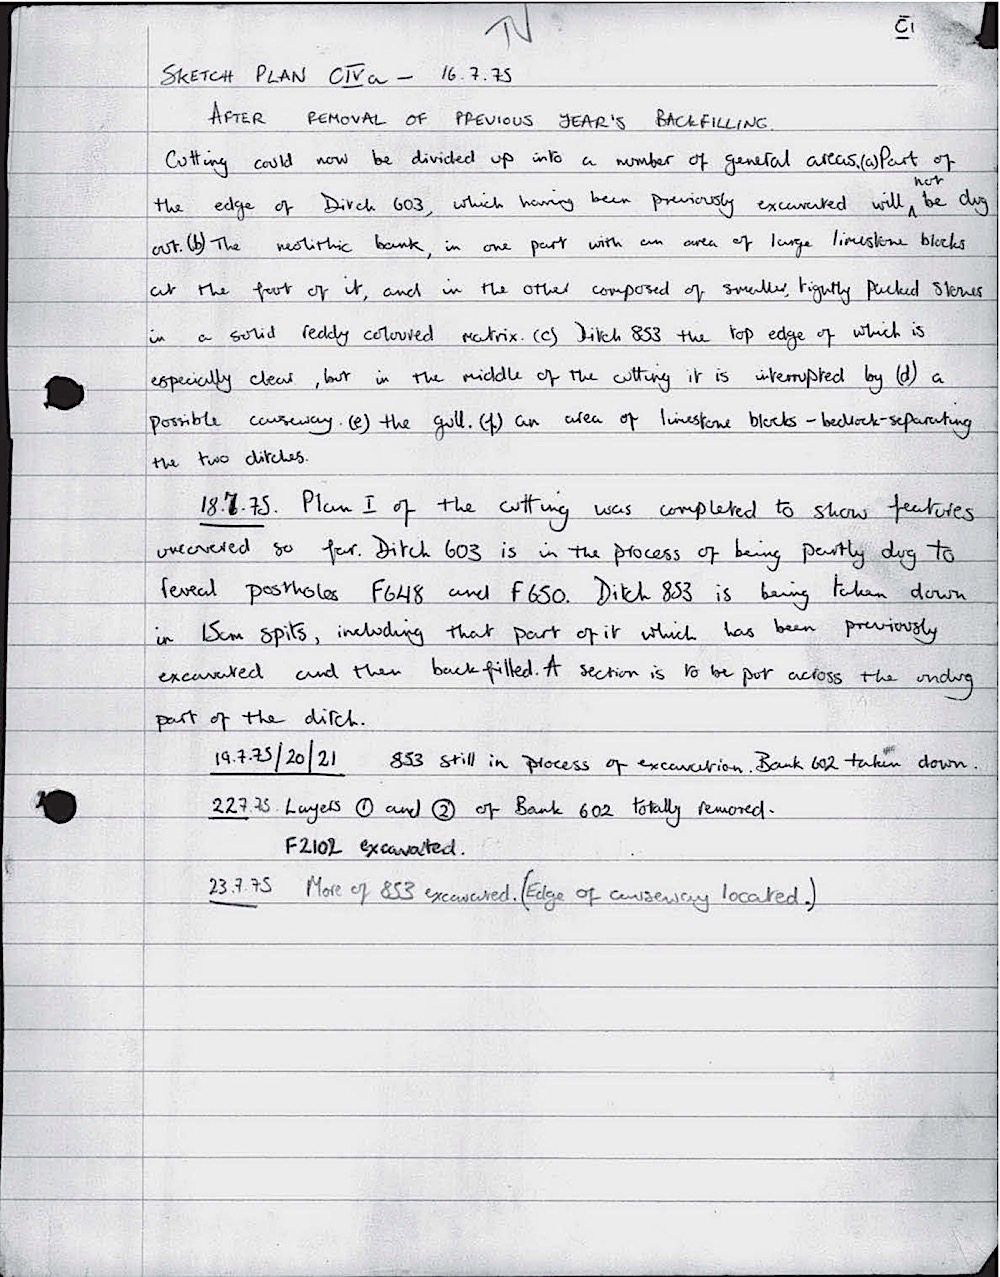 C1
SKETCH PLAN CIVa – 16.7.75
AFTER REMOVAL OF PREVIOUS YEAR'S BACKFILLING.
Cutting could now be divided up into a number of general areas.(a)Part of
the edge of Ditch 603, which having been previously excavated will not be dug
out.(b)The neolithic bank, in one part with an area of large limestone blocks
at the foot of it, and in the other composed of smaller, tightly packed stones
in a solid reddy coloured matrix. (c) Ditch 853 the top edge of which is
especially clear, but in the middle of the cutting it is interrupted by (d) a
possible causeway. (e) the gull. (f) an area of limestone blocks – bedrock – separating
the two ditches.
18.7.75. Plan I of the cutting was completed to show features
uncovered so far. Ditch 603 is in the process of being partly dug to
reveal postholes F648 and F650. Ditch 853 is being taken down
in 15cm spits, including that part of it which has been previously
excavated and then backfilled. A section is to be put across the undug
part of the ditch.
19.7.75/20/21 853 still in process of excavation. Bank 602 taken down.
22.7.75. Layers ① and ② of Bank 602 totally removed.
F2102 excavated.
23.7.75 More of 853 excavated. (Edge of causeway located.)